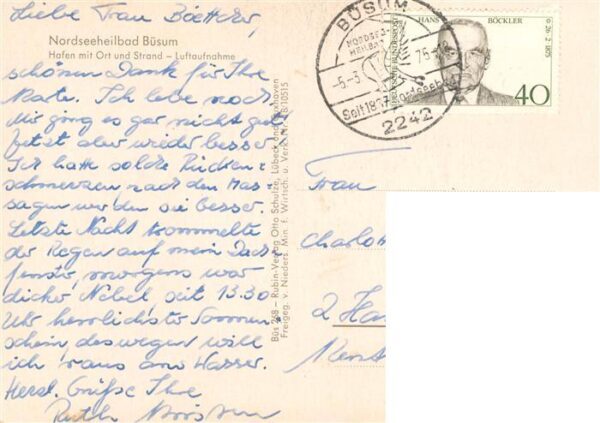 Liebe Frau Böttcher,
Nordseeheilbad Büsum
Hafen mit Ort und Strand – Luftaufnahme
schönen Dank für Ihre
Karte. Ich lebe noch.
Mir ging es gar nicht gut
jetzt aber wieder besser.
Ich hatte solche Rücken-
schmerzen nach den Mas-
sagen werden sie besser.
Letzte Nacht trommelte
der Regen auf mein Dach-
fenster, morgens war
dicker Nebel, seit 13.30
Uhr herrlichster Sonnen-
schein deswegen will
ich raus ans Wasser.
Herzl. Grüße Ihre
Ruth
Büs 268 – Rubin-Verlag Otto Schulze, Lübeck und Cuxhaven
Freigeg. v. Nieders. Min. f. Wirtsch. u. Verk.
BÜSUM
NORDSEE-
HEILBAD
-5.-3.75
Seit 1837 Nordseebad
2242
DEUTSCHE BUNDESPOST
HANS BÖCKLER
26·2·1875
40
Frau
Charlott
2 Ha
Rent